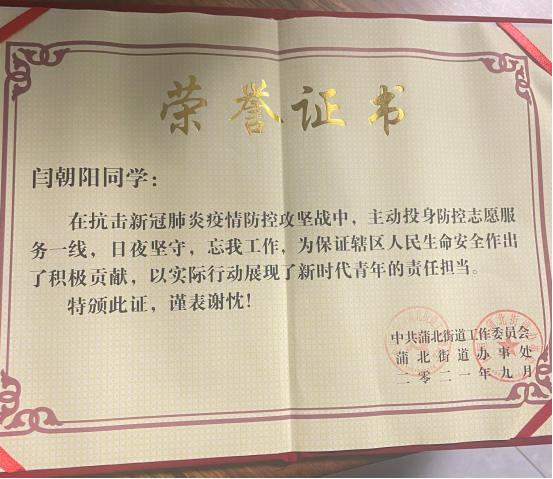 荣誉证书
闫朝阳同学：
在抗击新冠肺炎疫情防控攻坚战中，主动投身防控志愿服
务一线，日夜坚守，忘我工作，为保证辖区人民生命安全作出
了积极贡献，以实际行动展现了新时代青年的责任担当。
特颁此证，谨表谢忱！
中共蒲北街道工作委员会
蒲北街道办事处
二零二一年九月